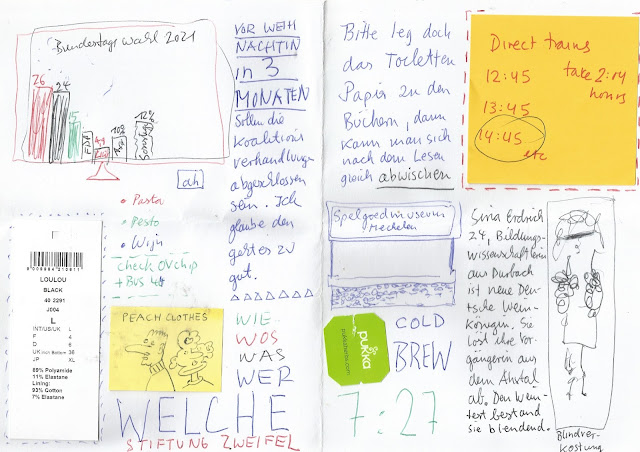 Bundestagswahl 2021
26
24
15
FDP
AfD
10%
12%
ah
• Pasta
• Pesto
• Wijn
check OV chip
+ BUS
LOULOU
BLACK
40 2291
J004
L
INT/US/UK L
F 4
D 6
JP XL
89% Polyamide
11% Elastane
Lining:
93% Cotton
7% Elastane
PEACH CLOTHES
VOR WEIH
NACHTIN
in 3
MONATEN
Sollen die
Koalitions
verhandlungen
abgeschlossen
sein. Ich
glaube den
geht es zu
gut.
WIE
WOS
WAS
WER
WELCHE
STIFTUNG ZWEIFEL
Bitte leg doch
das Toiletten
Papier zu den
Büchern, dann
kann man sich
nach dem Lesen
gleich abwischen
Direct trains
take 2:14
hours
12:45
13:45
14:45
etc
Speelgoedmuseum
Mechelen
pukka
pukkaherbs.com
COLD
BREW
7:27
Sina Erdrich
24, Bildungs-
wissenschaftlerin
aus Durbach
ist neue Deu-
tsche Wein-
königin. Sie
löst ihre Vor-
gängerin aus
dem Ahrtal
ab. Den Wein-
test bestand
sie blendend.
Blindver-
kostung